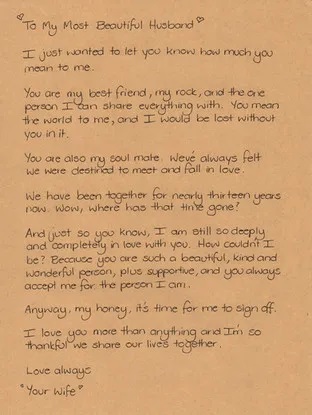 ♡To My Most Beautiful Husband♡
I just wanted to let you know how much you
mean to me.
You are my best friend, my rock, and the one
person I can share everything with. You mean
the world to me, and I would be lost without
you in it.
You are also my soul mate. We've always felt
we were destined to meet and fall in love.
We have been together for nearly thirteen years
now. Wow, where has that time gone?
And just so you know, I am still so deeply
and completely in love with you. How couldn't I
be? Because you are such a beautiful, kind and
wonderful person, plus supportive, and you always
accept me for the person I am.
Anyway, my honey, it's time for me to sign off.
I love you more than anything and I'm so
thankful we share our lives together.
Love always
"Your Wife"